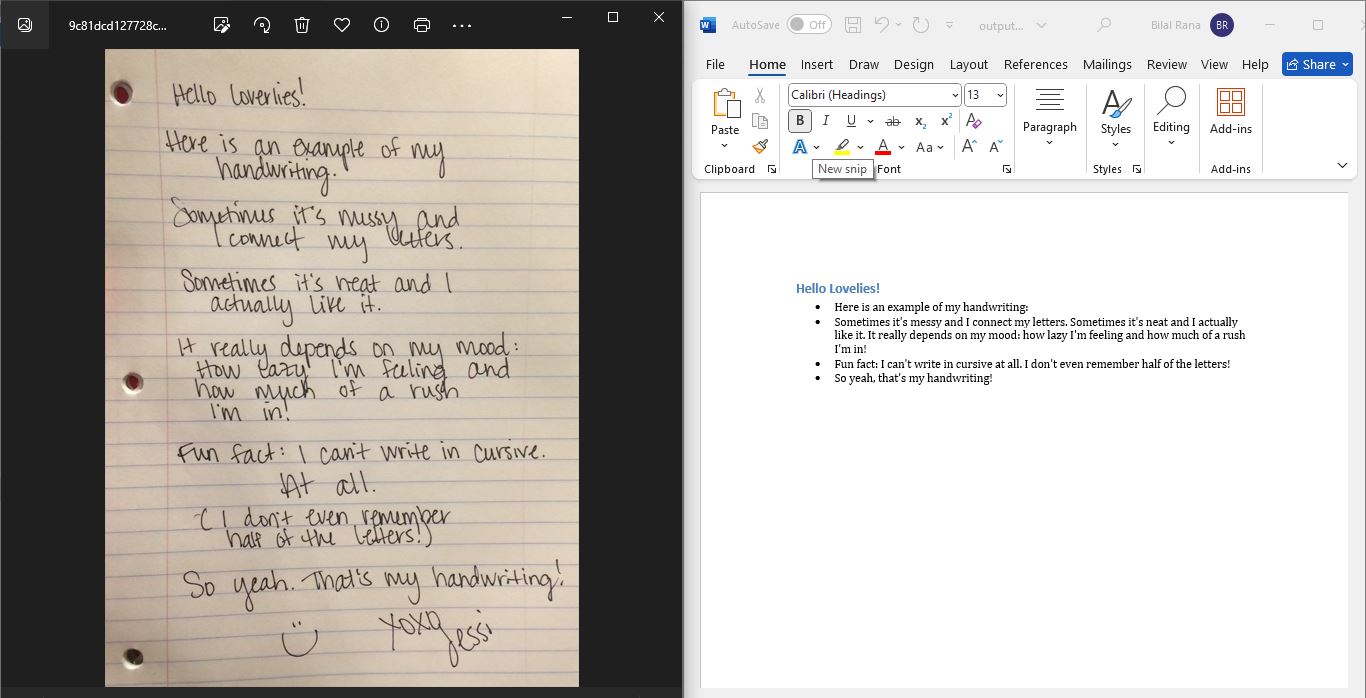 9c81dcd127728c...
Hello loverlies!
Here is an example of my
handwriting.
Sometimes it's messy and
I connect my letters.
Sometimes it's neat and I
actually like it.
It really depends on my mood:
How lazy I'm feeling and
how much of a rush
I'm in!
Fun fact: I can't write in cursive.
At all.
(I don't even remember
half of the letters!)
So yeah. That's my handwriting!
xoxo
Jessi
AutoSave Off
output...
Bilal Rana BR
File Home Insert Draw Design Layout References Mailings Review View Help Share
Calibri (Headings) 13
B I U ab x₂ x² A
A A Aa A A
Paste Paragraph Styles Editing Add-ins
New snip
Clipboard Font Styles Add-ins
Hello Lovelies!
• Here is an example of my handwriting:
• Sometimes it's messy and I connect my letters. Sometimes it's neat and I actually
like it. It really depends on my mood: how lazy I'm feeling and how much of a rush
I'm in!
• Fun fact: I can't write in cursive at all. I don't even remember half of the letters!
• So yeah, that's my handwriting!